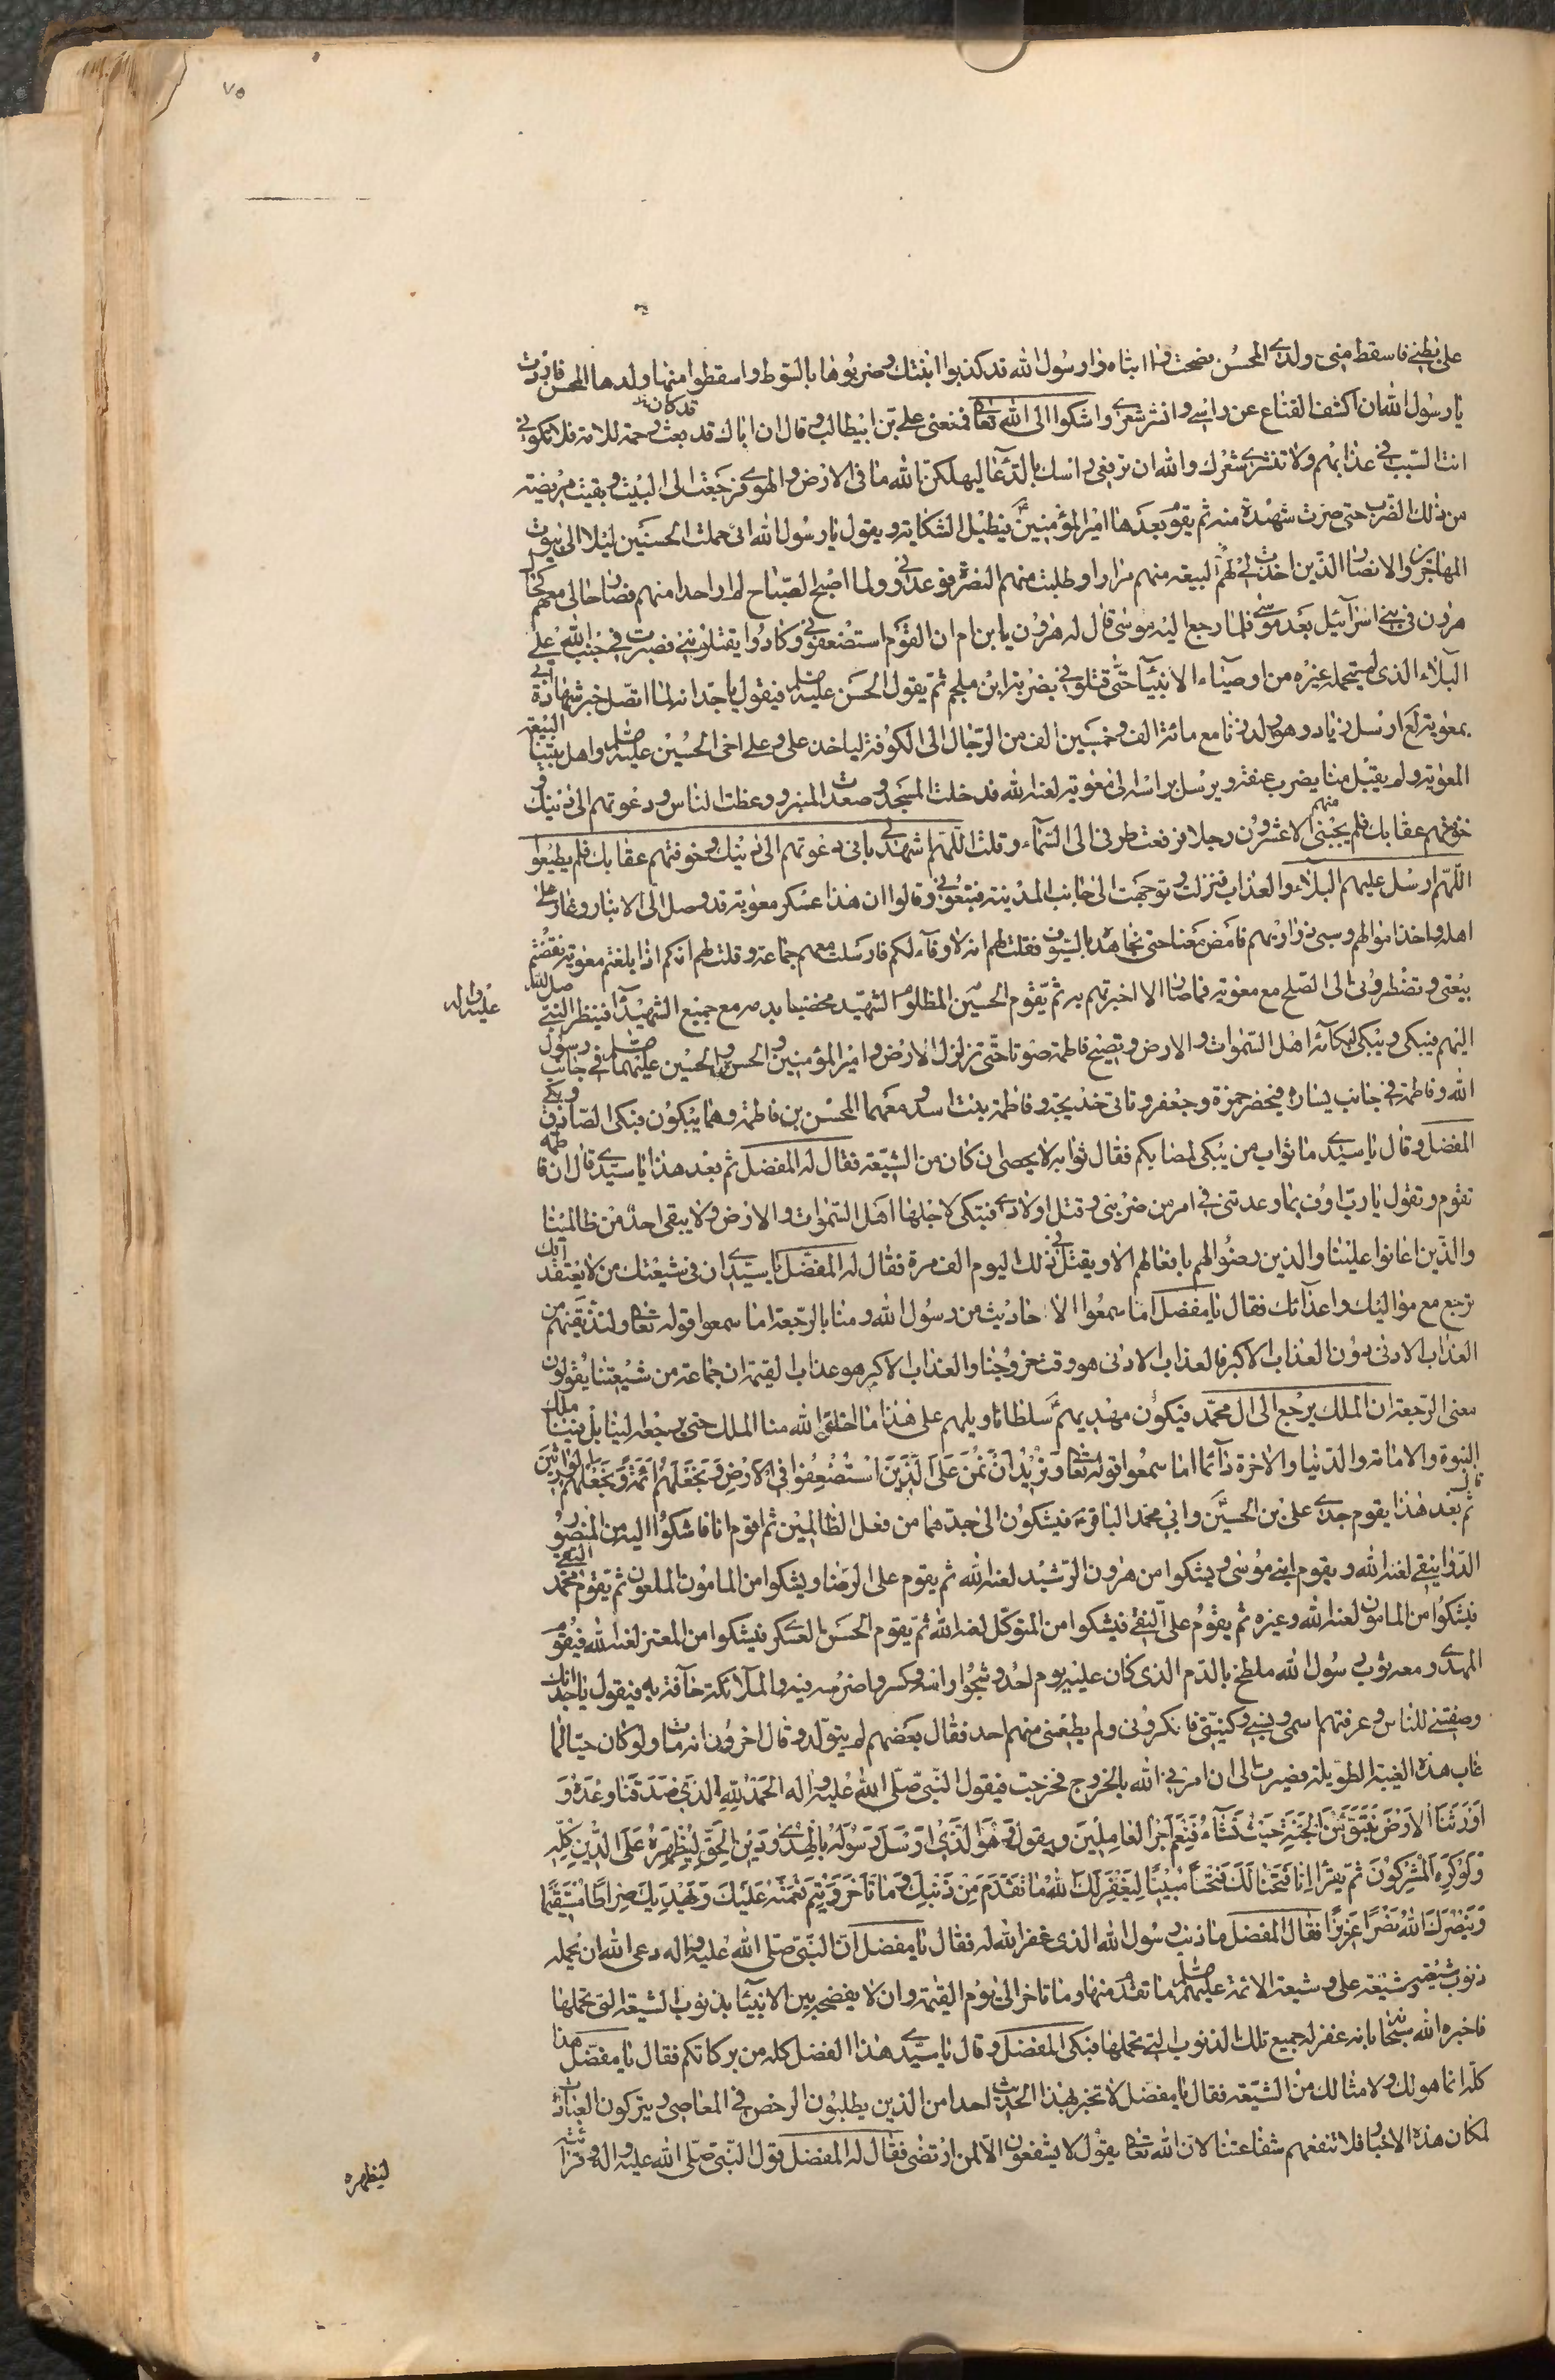 ٧٥
على بطني فاسقط مني ولدي المحسن فصحت وا ابتاه وا رسول الله قد كذبوا ابنتك وضربوها بالسوط واسقطوا منها ولدها المحسن فاردت
يا رسول الله ان اكشف القناع عن راسي وانشر شعري واشكوا الى الله تعا فمنعني علي بن ابيطالب وقال ان اباك قد كان بعث رحمة للامة فلا تكوني
انت السبب في عذابهم ولا تنشري شعرك والله ان ترفعي راسك بالدعا ليهلكن الله ما في الارض والهوى فرجعت الى البيت وبقيت مريضة
من ذلك الضرب حتى صرت شهيدة منه ثم يقوم بعدها امير المؤمنين فيطيل الشكاية ويقول يا رسول الله اني حملت الحسنين ليلا الى بيوت
المهاجرين والانصار الذين اخذت لي لهم البيعة منهم مرارا وطلبت منهم النصرة فوعدوني ولما اصبح الصباح لم ار احدا منهم فصار حالي معهم كحال
هرون في بني اسرآئيل بعد موسى فلما رجع اليه موسى قال له هرون يا بن ام ان القوم استضعفوني وكادوا يقتلونني فصبرت في جنب الله على
البلاء الذي لم يتحمله غيره من اوصياء الانبيآء حتى قتلوني بضربة ابن ملجم ثم يقول الحسن عليه فيقول يا جداه انه لما اتصل خبر شهادة ابي
بمعوية لع ارسل زياد وهو ولد زنا مع مائة الف وخمسين الف من الرجال الى الكوفة لياخذ علي وعلى اخي الحسين عليه واهل بيتنا البيعة
لمعوية ولم يقبل منا يضرب عنقه ويرسل براسه الى معوية لعنه الله فدخلت المسجد وصعدت المنبر ووعظت الناس ودعوتهم الى دينك و
خوفتهم عقابك فلم يجبني منهم الا عشرون رجلا فرفعت طرفي الى السمآء وقلت اللهم اشهد لي باني دعوتهم الى دينك وخوفتهم عقابك فلم يطيعوا
اللهم ارسل عليهم البلاء والعذاب فنزلت وتوجهت الى جانب المدينة فتبعوني وقالوا ان هذا عسكر معوية قد وصل الى الانبار وغار على
اهله واخذ اموالهم وسبى ذراريهم فامض معنا حتى نجاهده بالسيوف فقلت لهم انه لا وفآء لكم فارسلت معهم جماعة وقلت لهم انكم اذا بلغتم معوية نقضتم
بيعتي وتضطروني الى الصلح مع معوية فما صار الا ما اخبرتهم به ثم يقوم الحسين المظلوم الشهيد مخضبا بدمه مع جميع الشهدآء فينظر النبي صلى الله
عليه واله
اليهم فيبكي ويبكي لبكائه اهل السموات والارض وتصيح فاطمة صوتا حتى تزلزل الارض وامير المؤمنين والحسن والحسين عليهما في جانب رسول
الله وفاطمة في جانب يساره فيحضر حمزة وجعفر وتاتي خديجة وفاطمة بنت اسد ومعهما المحسن بن فاطمة وهما يبكون فبكى الصادق وبكى
المفضل وقال يا سيدي ما ثواب من يبكي لمصابكم فقال ثوابه لا يحصى ان كان من الشيعة فقال له المفضل ثم بعد هذا يا سيدي قال ان فاطمة
تقوم وتقول يا رب اوف بما وعدتني في امر من ضربني وقتل اولادي فتبكي لاجلها اهل السموات والارض ولا يبقى احد من ظالمينا
والذين اعانوا علينا والذين رضوا لهم بافعالهم الا ويقتل في ذلك اليوم الف مرة فقال له المفضل يا سيدي ان في شيعتك من لا يعتقد انك
ترجع مع مواليك واعدآئك فقال يا مفضل اما سمعوا الاحاديث من رسول الله ومنا بالرجعة اما سمعوا قوله تعا ولنذيقنهم من
العذاب الادنى دون العذاب الاكبر فالعذاب الادنى هو وقت خروجنا والعذاب الاكبر هو عذاب القيمة ان جماعة من شيعتنا يقولون
معنى الرجعة ان الملك يرجع الى ال محمد فيكون مهديهم سلطانا ويلهم على هذا ما اخذ الله منا الملك حتى يرجعه الينا بل فينا ملك
النبوة والامامة والدنيا والاخرة دآئما اما سمعوا قوله تعا ونريد ان نمن على الذين استضعفوا في الارض ونجعلهم ائمة ونجعلهم الوارثين
ثم قال بعد هذا يقوم جدي علي بن الحسين وابي محمد الباقر فيشكون الى جدهما من فعل الظالمين ثم اقوم انا فاشكوا اليه من المنصور
الدوانيقي لعنه الله ويقوم ابني موسى ويشكوا من هرون الرشيد لعنه الله ثم يقوم علي الرضا ويشكوا من المامون الملعون ثم يقوم محمد التقي
فيشكوا من المامون لعنه الله وغيره ثم يقوم علي النقي فيشكوا من المتوكل لعنه الله ثم يقوم الحسن العسكر فيشكوا من المعتز لعنه الله فيقوم
المهدي ومعه ثوب رسول الله ملطخ بالدم الذي كان عليه يوم احد وشجوا راسه وكسروا ضرسه فيه والملائكة حآفة به فيقول يا جداه انك
وصفتني للناس وعرفتهم اسمي ونسبي وكنيتي فانكروني ولم يطعني منهم احد فقال بعضهم لم يتولد وقال اخرون انه مات ولو كان حيا لما
غاب هذه الغيبة الطويلة فصبرت الى ان امرني الله بالخروج فخرجت فيقول النبي صلى الله عليه واله الحمد لله الذي صدقنا وعده و
اورثنا الارض نتبوء من الجنة حيث نشآء فنعم اجر العاملين ويقول هو الذي ارسل رسوله بالهدى ودين الحق ليظهره على الدين كله
ولو كره المشركون ثم يقرا انا فتحنا لك فتحا مبينا ليغفر لك الله ما تقدم من ذنبك وما تاخر ويتم نعمته عليك ويهديك صراطا مستقيما
وينصرك الله نصرا عزيزا فقال المفضل ما ذنب رسول الله الذي غفر الله له فقال يا مفضل ان النبي صلى الله عليه واله دعى الله ان يحمله
ذنوب شيعته وشيعة علي وشيعة الائمة عليهم ما تقدم منها وما تاخر الى يوم القيمة وان لا يفضحه بين الانبيآء بذنوب الشيعة التي تحملها
فاخبره الله سبحانه بانه غفر له جميع تلك الذنوب التي تحملها فبكى المفضل وقال يا سيدي هذا الفضل كله من بركاتكم فقال يا مفضل هذا
كله انما هو لك ولامثالك من الشيعة فقال يا مفضل لا تخبر بهذا الحديث احدا من الذين يطلبون الرخص في المعاصي ويتركون العبادات
لمكان هذه الاخبار فلا تنفعهم شفاعتنا لان الله تعا يقول لا يشفعون الا لمن ارتضى فقال له المفضل قول النبي صلى الله عليه واله وقرائته
ليظهره